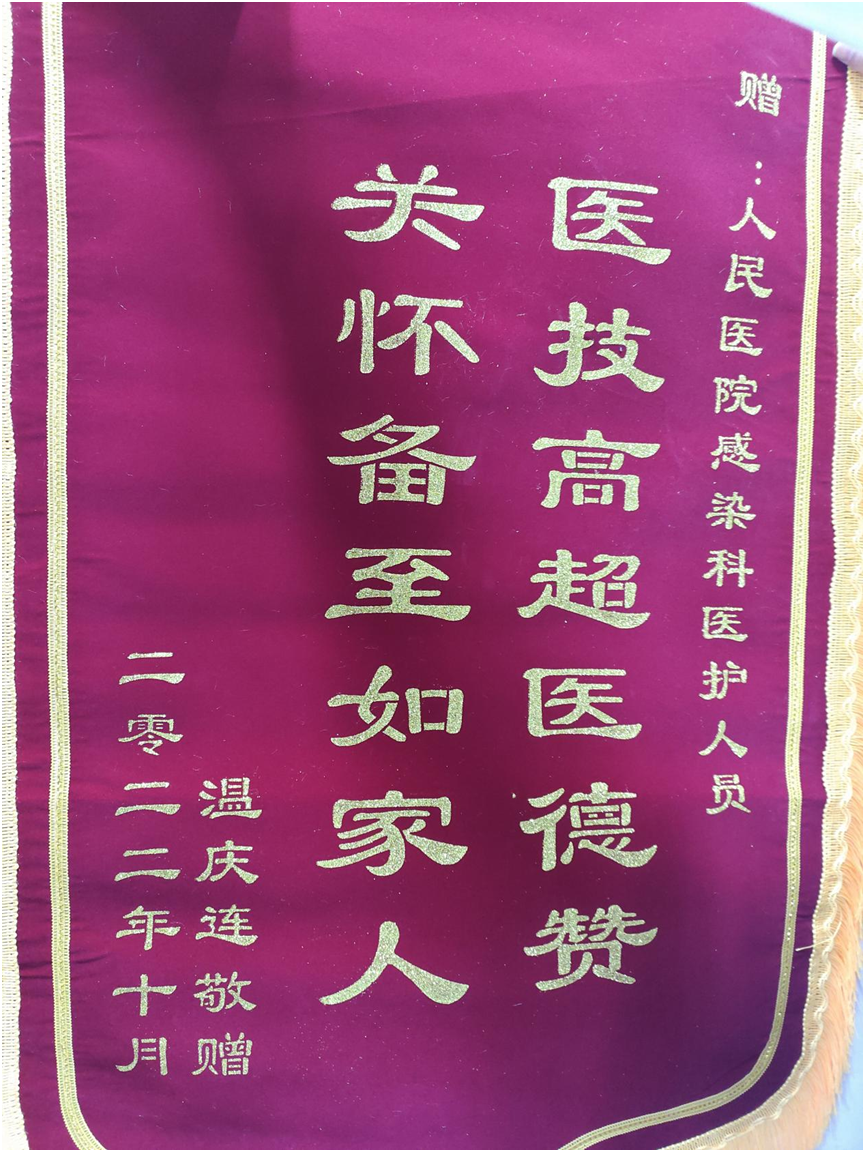 赠：人民医院感染科医护人员
医技高超医德赞
关怀备至如家人
温庆连敬赠
二零二二年十月